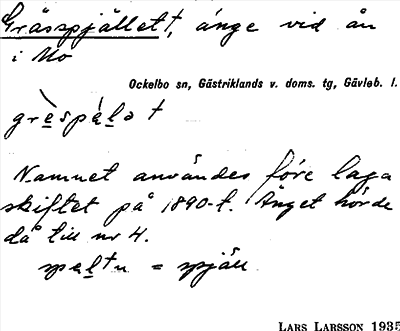 Grässpjället, änge vid ån
i Mo
Ockelbo sn, Gästriklands v. doms. tg, Gävleb. l.
grèspálət
Namnet användes före laga
skiftet på 1890-t. Änget hörde
då till nr 4.
= spjäll
LARS LARSSON 1935